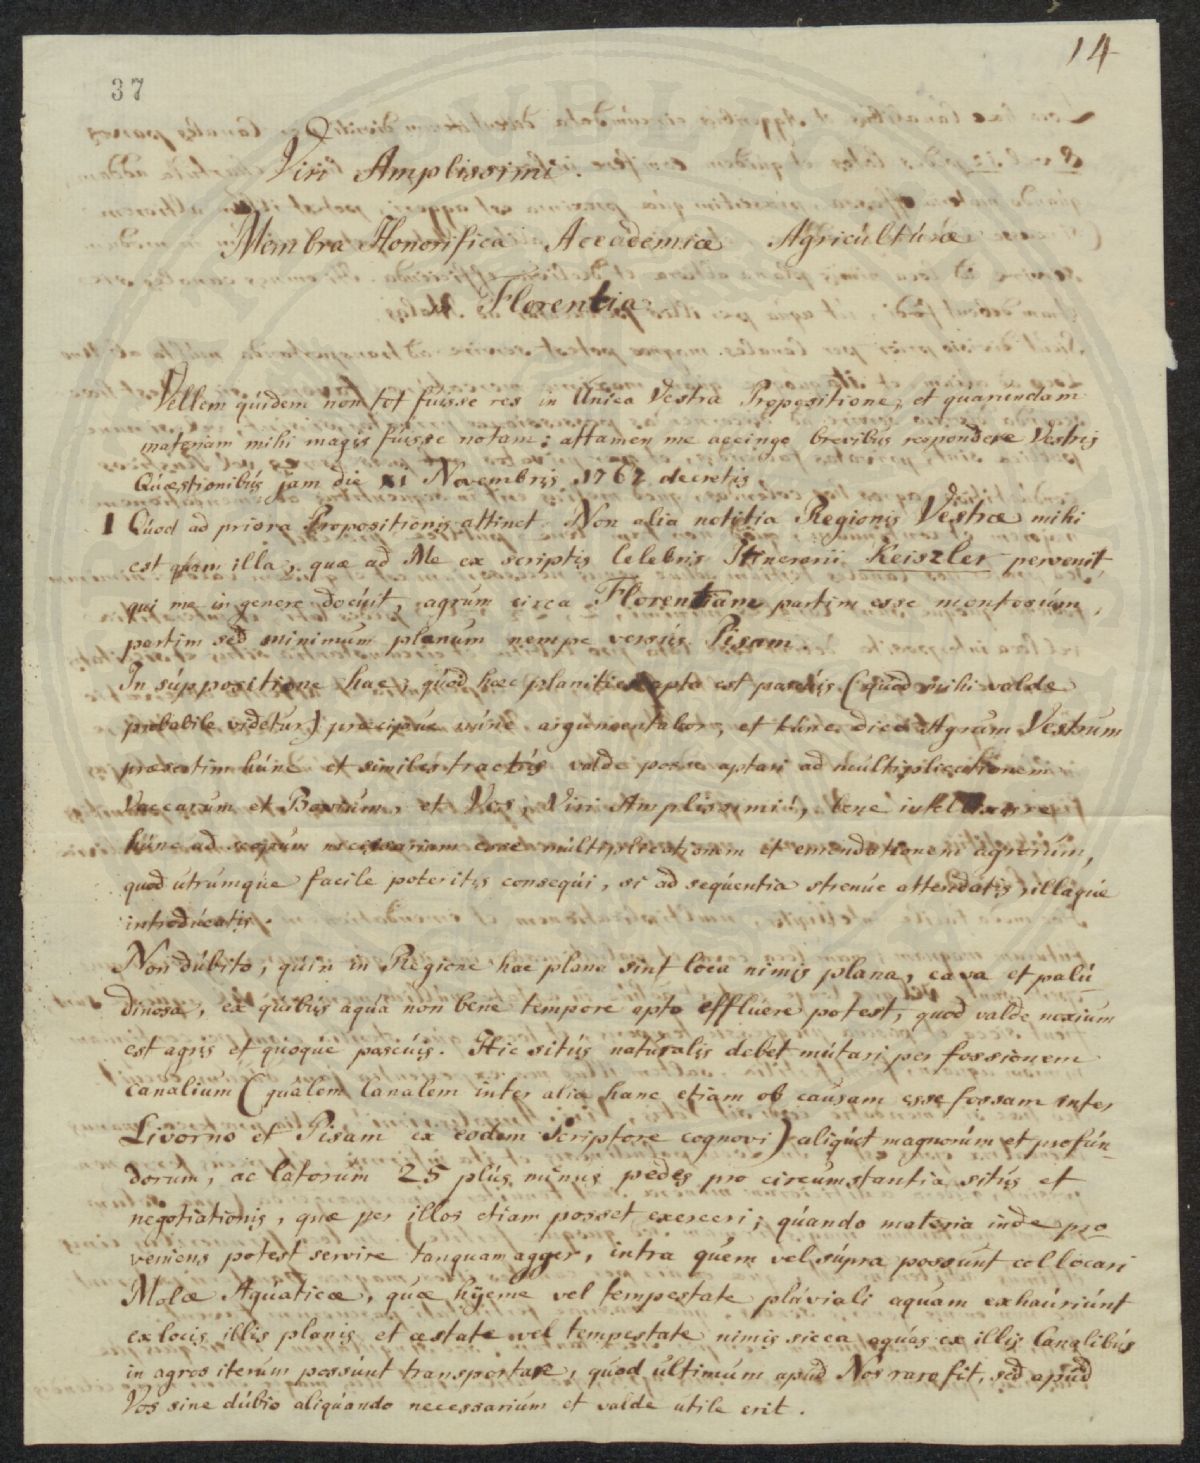 14
37
Viri Amplissimi.
Membra Honorifica Accademiæ Agricultúræ
Florentiæ
Vellem quidem non tot fuisse res in Unica Vestra Propositione, et quarundam
materiam mihi magis fuisse notam; attamen me accingo brevibus respondere Vestris
Quæstionibús jam die XI Novembris 1767 decretis
I Quod ad priora Propositionis attinet. Non alia notitia Regionis Vestræ mihi
est quam illa, quæ ad Me ex scriptis Celebris Itinerarii Keiszler pervenit,
qui me in genere docúit, agrúm circa Florentiam partim esse montosúm,
partim sed minimum planum nempe versús Pisam
In súppositione hac, qúod hæc planities apta est pascúis (qúod mihi valde
probabile videtur) præcipue núnc argumentabor, et túnc dico Agrum Vestrum
præsertim húnc et similes tractús valde posse aptari ad múltiplicationem
Vaccarum et Bovium, et Vos, Viri Amplissimi, bene intellexere
húnc ad scopum necessariam esse multiplicationem et emendationem agrorúm,
quod útrúmqúe facile poteritis conseqúi, si ad seqúentia strenúe attendatis, illaqúe
introdúcatis.
Non dúbito, qúin in Regione hac plana sint loca nimis plana, cava et palú
dinosa, ex qúibús aqúa non bene tempore apto efflúere potest, quod valde noxium
est agris et quoqúe pascúis. Hic sitús natúralis debet mútari per fossionem
canalium (qualem Canalem inter alia hanc etiam ob causam esse fossam inter
Livorno et Pisam ex eodem Scriptore cognovi) aliqúot magnorúm et profún-
dorum, ac latorum 25 plús minus pedes pro circumstantia sitús et
negotiationis, quæ per illos etiam posset exerceri; qúando materia inde pro
veniens potest servire tanquam agger, intra qúem vel súpra possunt collocari
Molæ Aqúaticæ, quæ hyeme vel tempestate plúviali aquam exhaúriúnt
ex locis illis planis et æstate vel tempestate nimis sicca aqúas ex illis Canalibús
in agros iterúm possúnt transportare, qúod últimúm apúd Nos raro fit, sed apúd
Vos sine dúbio aliqúando necessarium et valde utile erit.